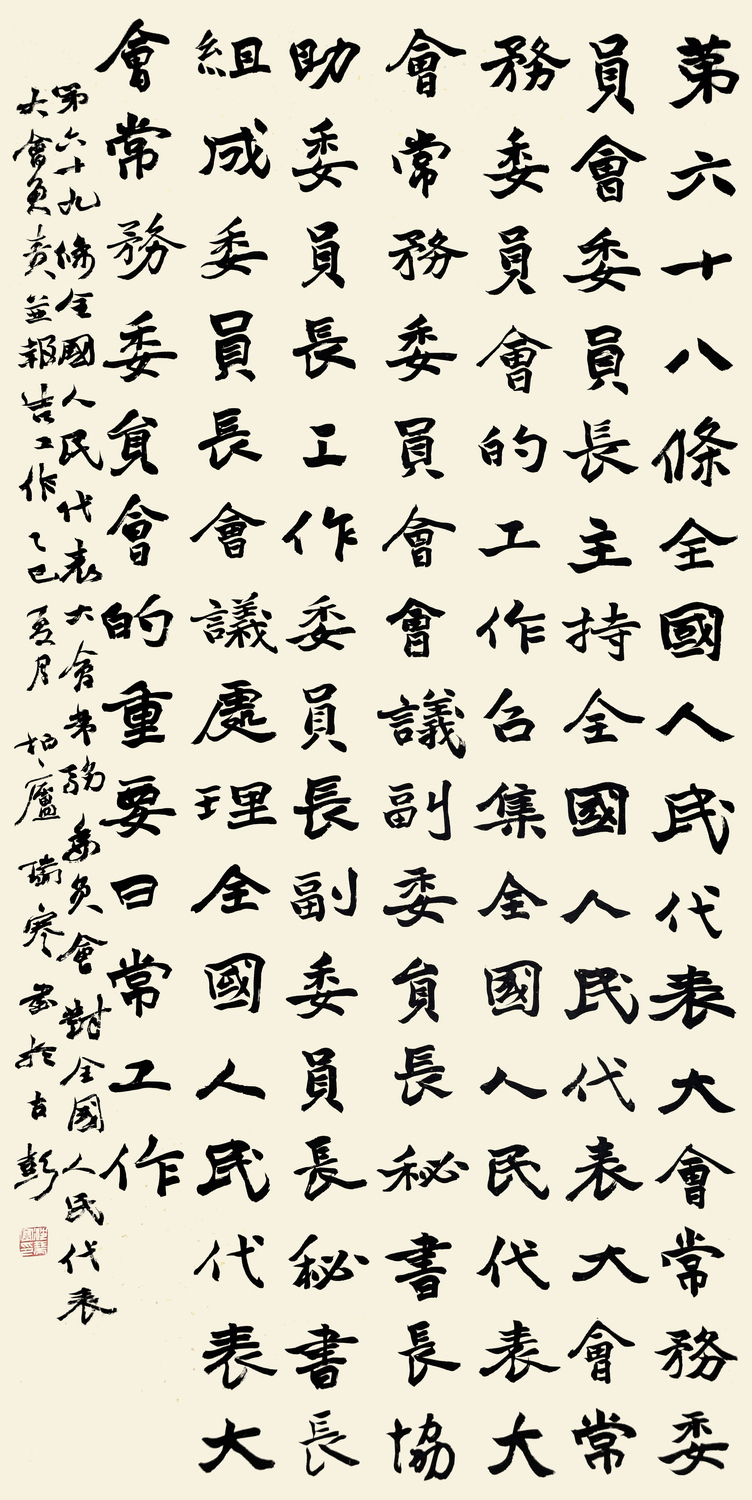 第六十八條全國人民代表大會常務委
員會委員長主持全國人民代表大會常
務委員會的工作召集全國人民代表大
會常務委員會會議副委員長秘書長協
助委員長工作委員長副委員長秘書長
組成委員長會議處理全國人民代表大
會常務委員會的重要日常工作
第六十九條全國人民代表大會常務委員會對全國人民代表
大會負責並報告工作乙巳夏月栢廬寒書於古彭